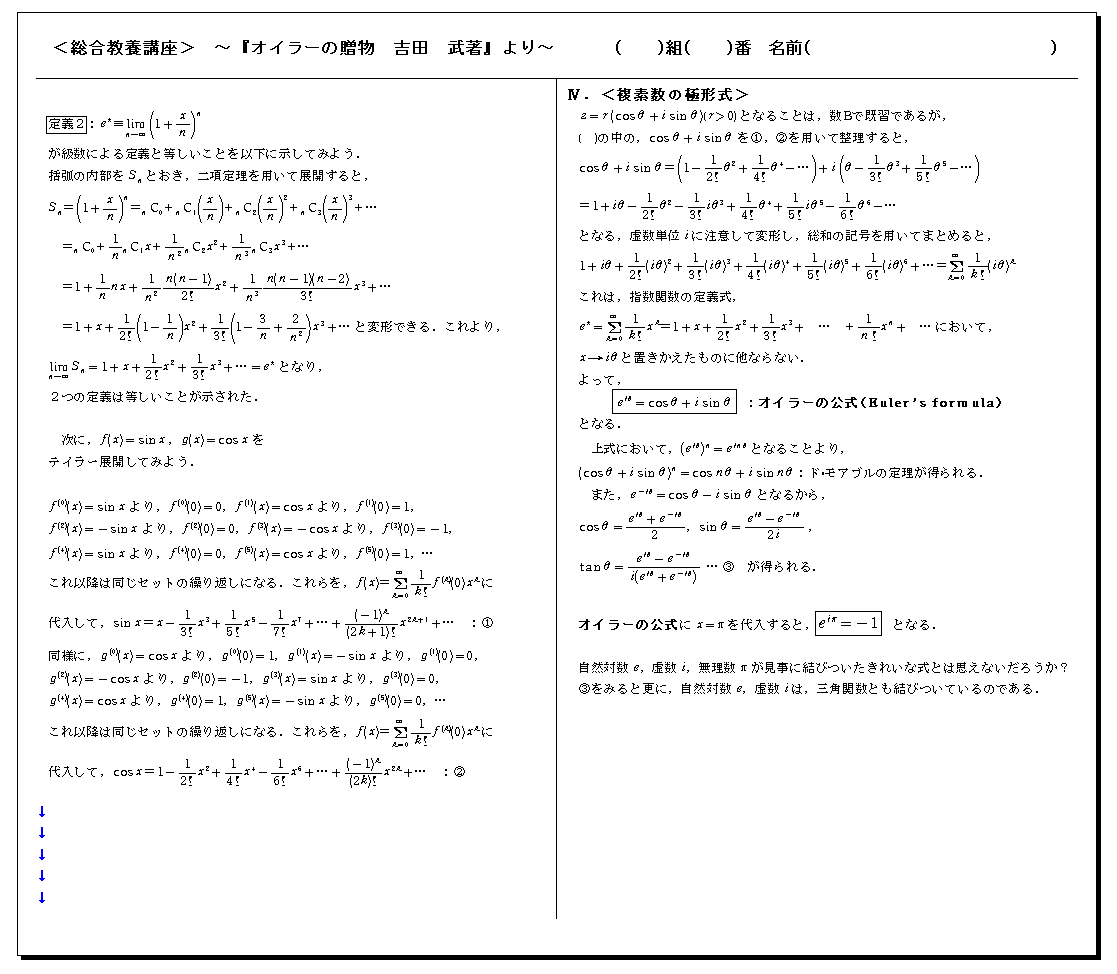 ＜総合教養講座＞　～『オイラーの贈物　吉田　武著』より～　　　(　　)組(　　)番　名前(　　　　　　　　　　　　　　)
定義２：e^x≡lim_{n→∞}(1+x/n)^n
が級数による定義と等しいことを以下に示してみよう．
括弧の内部を S_n とおき，二項定理を用いて展開すると，
S_n=(1+x/n)^n=_nC_0+_nC_1(x/n)+_nC_2(x/n)^2+_nC_3(x/n)^3+…
=_nC_0+1/n _nC_1x+1/n^2 _nC_2x^2+1/n^3 _nC_3x^3+…
=1+1/n nx+1/n^2 n(n-1)/2! x^2+1/n^3 n(n-1)(n-2)/3! x^3+…
=1+x+1/2!(1-1/n)x^2+1/3!(1-3/n+2/n^2)x^3+… と変形できる．これより，
lim_{n→∞}S_n=1+x+1/2! x^2+1/3! x^3+…=e^x となり，
２つの定義は等しいことが示された．
次に，f(x)=sin x，g(x)=cos x を
テイラー展開してみよう．
f^(0)(x)=sin x より，f^(0)(0)=0，f^(1)(x)=cos x より，f^(1)(0)=1，
f^(2)(x)=-sin x より，f^(2)(0)=0，f^(3)(x)=-cos x より，f^(3)(0)=-1，
f^(4)(x)=sin x より，f^(4)(0)=0，f^(5)(x)=cos x より，f^(5)(0)=1，…
これ以降は同じセットの繰り返しになる．これらを，f(x)=∑_{k=0}^∞ 1/k! f^(k)(0)x^k に
代入して，sin x=x-1/3! x^3+1/5! x^5-1/7! x^7+…+(-1)^k/(2k+1)! x^{2k+1}+…　：①
同様に，g^(0)(x)=cos x より，g^(0)(0)=1，g^(1)(x)=-sin x より，g^(1)(0)=0，
g^(2)(x)=-cos x より，g^(2)(0)=-1，g^(3)(x)=sin x より，g^(3)(0)=0，
g^(4)(x)=cos x より，g^(4)(0)=1，g^(5)(x)=-sin x より，g^(5)(0)=0，…
これ以降は同じセットの繰り返しになる．これらを，f(x)=∑_{k=0}^∞ 1/k! f^(k)(0)x^k に
代入して，cos x=1-1/2! x^2+1/4! x^4-1/6! x^6+…+(-1)^k/(2k)! x^{2k}+…　：②
↓
↓
↓
↓
↓
Ⅳ．＜複素数の極形式＞
z=r(cosθ+i sinθ)(r>0)となることは，数Bで既習であるが，
(　)の中の，cosθ+i sinθ を①，②を用いて整理すると，
cosθ+i sinθ=(1-1/2! θ^2+1/4! θ^4-…)+i(θ-1/3! θ^3+1/5! θ^5-…)
=1+iθ-1/2! θ^2-1/3! iθ^3+1/4! θ^4+1/5! iθ^5-1/6! θ^6-…
となる，虚数単位 i に注意して変形し，総和の記号を用いてまとめると，
1+iθ+1/2!(iθ)^2+1/3!(iθ)^3+1/4!(iθ)^4+1/5!(iθ)^5+1/6!(iθ)^6+…=∑_{k=0}^∞ 1/k!(iθ)^k
これは，指数関数の定義式，
e^x=∑_{k=0}^∞ 1/k! x^k=1+x+1/2! x^2+1/3! x^3+　…　+1/n! x^n+　… において，
x→iθ と置きかえたものに他ならない．
よって，
e^{iθ}=cosθ+i sinθ　：オイラーの公式(Euler's formula)
となる．
上式において，(e^{iθ})^n=e^{inθ} となることより，
(cosθ+i sinθ)^n=cos nθ+i sin nθ：ド・モアブルの定理が得られる．
また，e^{-iθ}=cosθ-i sinθ となるから，
cosθ=(e^{iθ}+e^{-iθ})/2，sinθ=(e^{iθ}-e^{-iθ})/2i，
tanθ=(e^{iθ}-e^{-iθ})/i(e^{iθ}+e^{-iθ}) … ③　が得られる．
オイラーの公式に x=π を代入すると，e^{iπ}=-1　となる．
自然対数 e，虚数 i，無理数 π が見事に結びついたきれいな式とは思えないだろうか？
③をみると更に，自然対数 e，虚数 i は，三角関数とも結びついているのである．